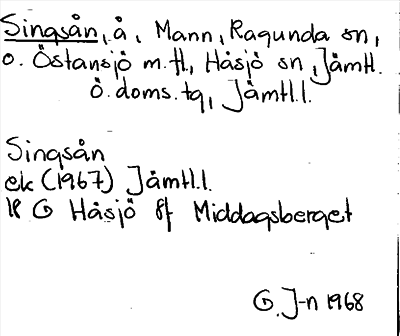 Singsån, å, Mann, Ragunda sn,
o. Östansjö m.fl., Håsjö sn, Jämtl.
Ö. doms. tg, Jämtl.l.
Singsån
ek (1967) Jämtl.l.
18 G Håsjö 8f Middagsberget
G. J-n 1968